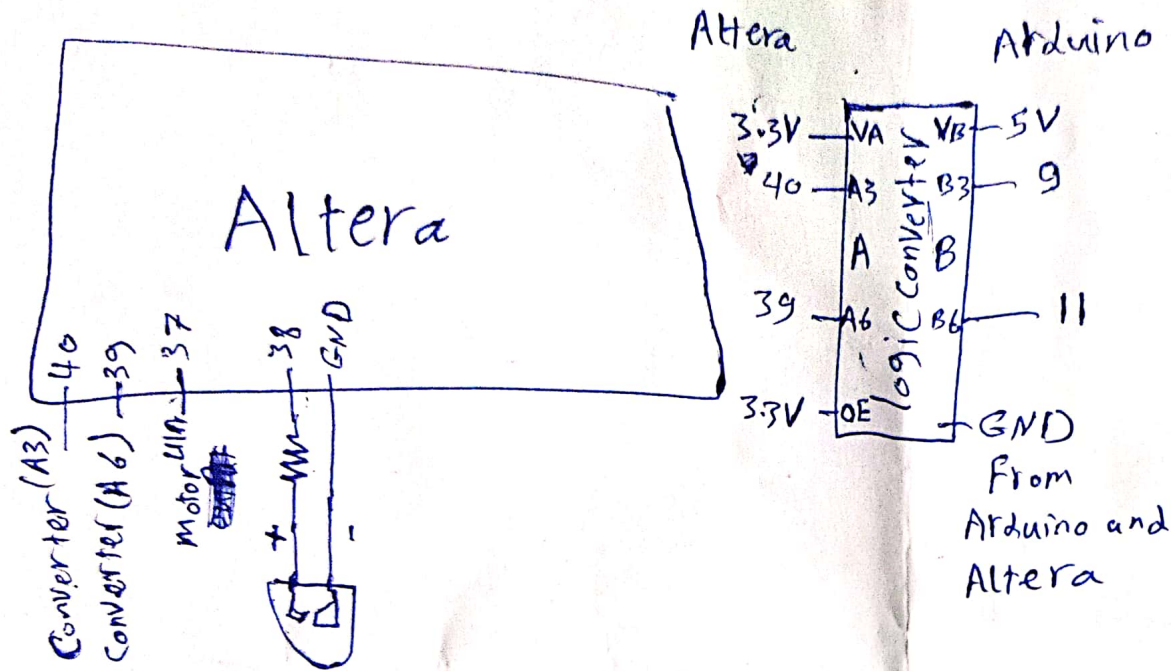 Altera
40
39
37
38
GND
Converter (A3)
Converter (A6)
motor
+
-
Altera
Arduino
3.3V
VA
VB
5V
40
A3
B3
9
logic Converter
A
B
39
A6
B6
11
3.3V
OE
GND
From
Arduino and
Altera